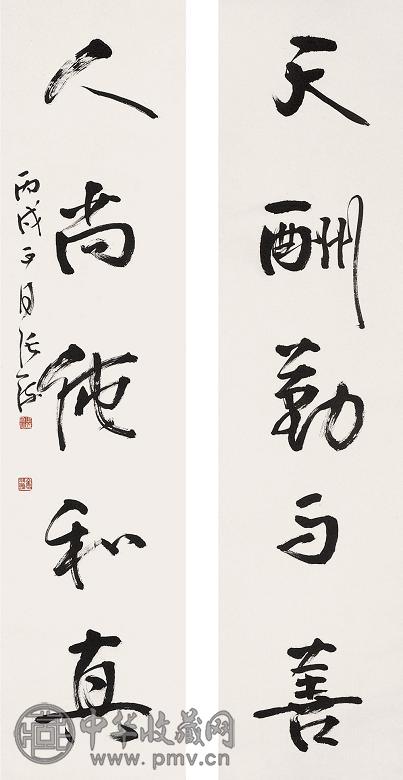 天酬勤与善
人尚纯和真
丙戌 月张
中华收藏网
www.pmv.cn